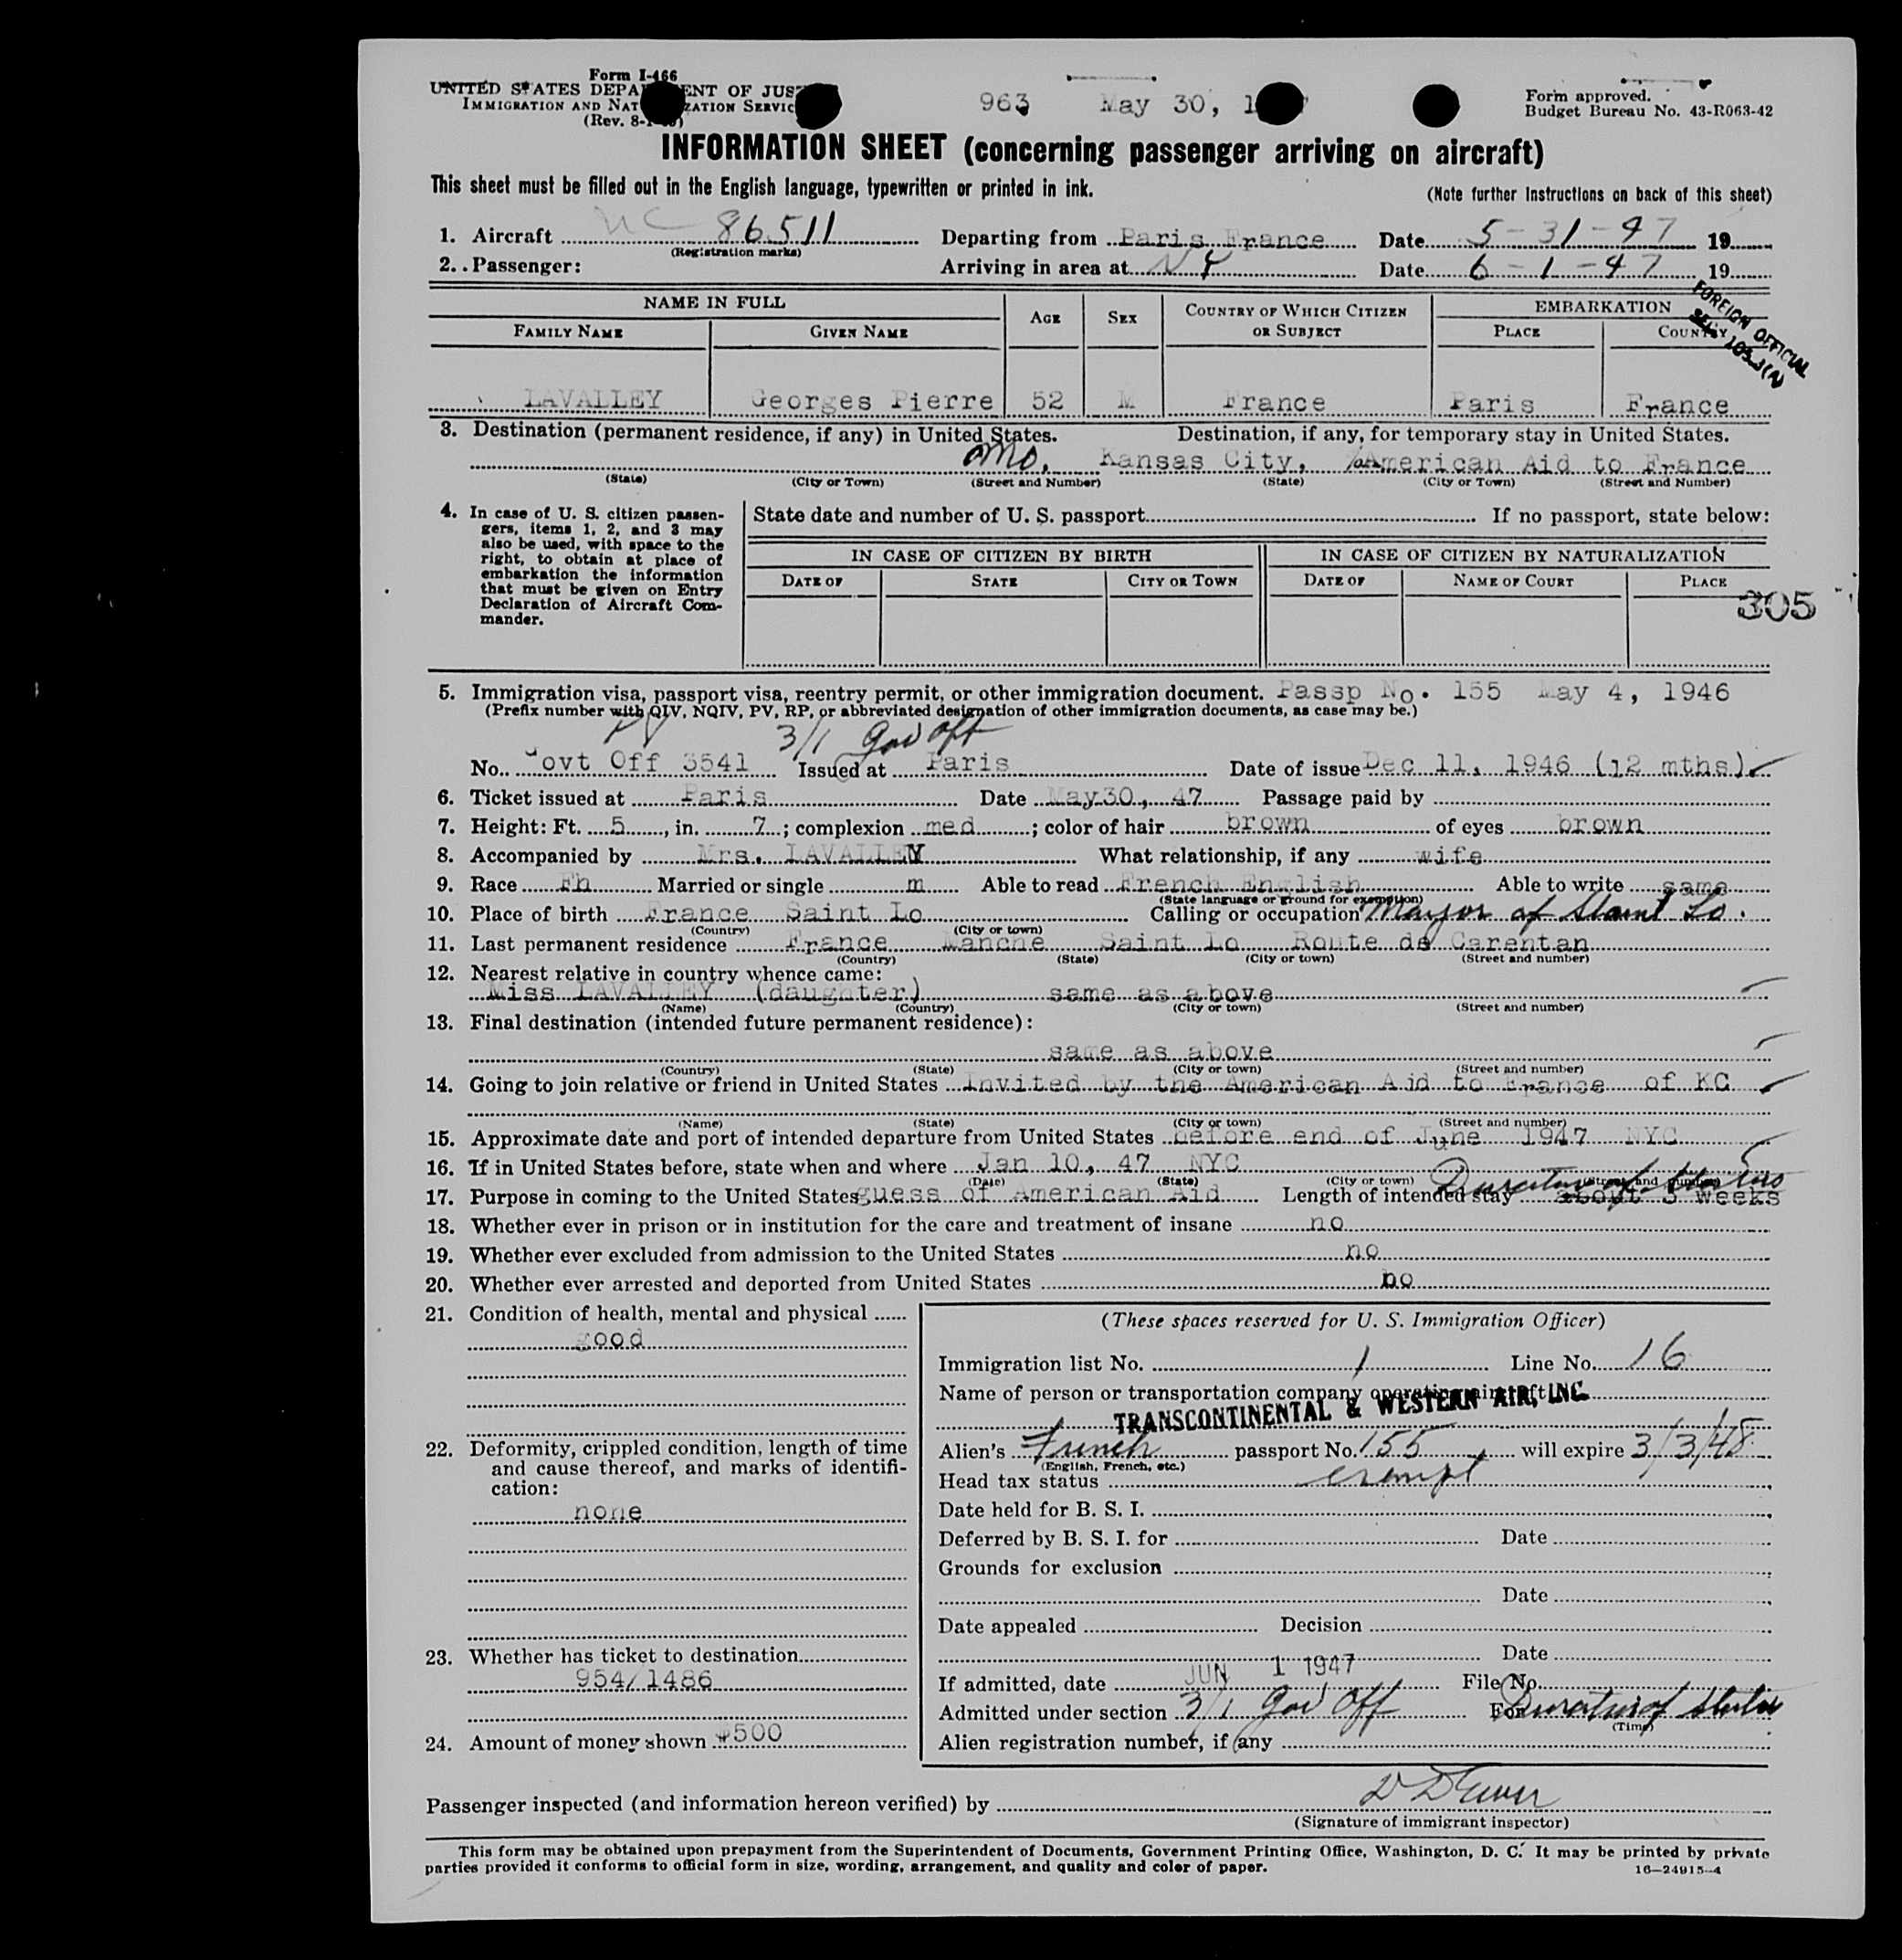 Form I-466
UNITED STATES DEPA ENT OF JUS
IMMIGRATION AND NAT ZATION SERVIC
(Rev. 8-1
963 May 30, 1
Form approved.
Budget Bureau No. 43-R063-42
INFORMATION SHEET (concerning passenger arriving on aircraft)
This sheet must be filled out in the English language, typewritten or printed in ink.
(Note further instructions on back of this sheet)
1. Aircraft NC 86511 Departing from Paris France Date 5-31-47 19
(Registration marks)
2. Passenger: Arriving in area at NY Date 6-1-47 19
FOREIGN OFFICIAL
SEC 103.1(A)
NAME IN FULL AGE SEX COUNTRY OF WHICH CITIZEN OR SUBJECT EMBARKATION
FAMILY NAME GIVEN NAME PLACE COUNTRY
LAVALLEY Georges Pierre 52 M France Paris France
3. Destination (permanent residence, if any) in United States. Destination, if any, for temporary stay in United States.
Mo. Kansas City, American Aid to France
(State) (City or Town) (Street and Number) (State) (City or Town) (Street and Number)
4. In case of U. S. citizen passen-
gers, items 1, 2, and 3 may
also be used, with space to the
right, to obtain at place of
embarkation the information
that must be given on Entry
Declaration of Aircraft Com-
mander.
State date and number of U. S. passport If no passport, state below:
IN CASE OF CITIZEN BY BIRTH IN CASE OF CITIZEN BY NATURALIZATION
DATE OF STATE CITY OR TOWN DATE OF NAME OF COURT PLACE
305
5. Immigration visa, passport visa, reentry permit, or other immigration document. Passp No. 155 May 4, 1946
(Prefix number with QIV, NQIV, PV, RP, or abbreviated designation of other immigration documents, as case may be.)
PV 3/1 Gov Off
No. Govt Off 3541 Issued at Paris Date of issue Dec 11, 1946 (12 mths)
6. Ticket issued at Paris Date May30, 47 Passage paid by
7. Height: Ft. 5, in. 7; complexion med; color of hair brown of eyes brown
8. Accompanied by Mrs. LAVALLEY What relationship, if any wife
9. Race Fh Married or single m Able to read French English Able to write same
(State language or ground for exemption)
10. Place of birth France Saint Lo Calling or occupation Mayor of Saint Lo.
(Country) (City or town)
11. Last permanent residence France Manche Saint Lo Route de Carentan
(Country) (State) (City or town) (Street and number)
12. Nearest relative in country whence came:
Miss LAVALLEY (daughter) same as above
(Name) (Country) (City or town) (Street and number)
13. Final destination (intended future permanent residence):
same as above
(Country) (State) (City or town) (Street and number)
14. Going to join relative or friend in United States Invited by the American Aid to France of KC
(Name) (State) (City or town) (Street and number)
15. Approximate date and port of intended departure from United States before end of June 1947 NYC
16. If in United States before, state when and where Jan 10, 47 NYC
(Date) (State) (City or town) (Street and number)
Duration of Status
17. Purpose in coming to the United States guess of American Aid Length of intended stay about 3 weeks
18. Whether ever in prison or in institution for the care and treatment of insane no
19. Whether ever excluded from admission to the United States no
20. Whether ever arrested and deported from United States no
21. Condition of health, mental and physical
good
22. Deformity, crippled condition, length of time
and cause thereof, and marks of identifi-
cation:
none
23. Whether has ticket to destination
954/1486
24. Amount of money shown $500
(These spaces reserved for U. S. Immigration Officer)
Immigration list No. 1 Line No. 16
Name of person or transportation company operating aircraft
TRANSCONTINENTAL & WESTERN AIR, INC.
Alien's French passport No. 155 will expire 3/3/48
(English, French, etc.)
Head tax status exempt
Date held for B. S. I.
Deferred by B. S. I. for Date
Grounds for exclusion
Date
Date appealed Decision
Date
If admitted, date JUN 1 1947 File No.
Admitted under section 3/1 Gov Off For Duration of Status
(Time)
Alien registration number, if any
Passenger inspected (and information hereon verified) by
(Signature of immigrant inspector)
This form may be obtained upon prepayment from the Superintendent of Documents, Government Printing Office, Washington, D. C. It may be printed by private
parties provided it conforms to official form in size, wording, arrangement, and quality and color of paper.
16—24915-4